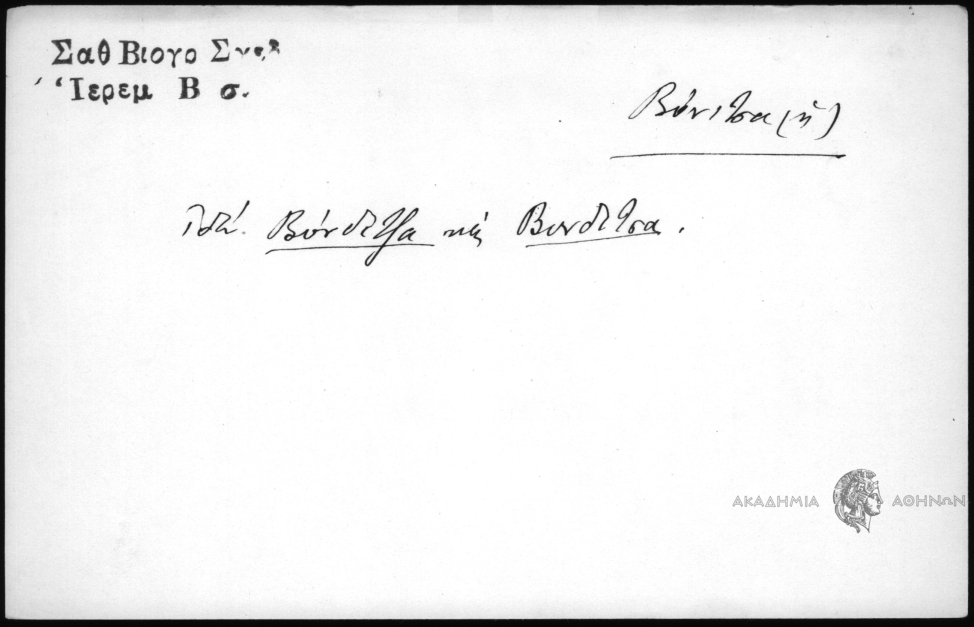 Σαθ Βιογρ Σχεδ
Ἱερεμ Β σ.
Βόνιτσα (ἡ)
Βόνδιτζα καὶ Βονδιτσα.
ΑΚΑΔΗΜΙΑ ΑΘΗΝΩΝ